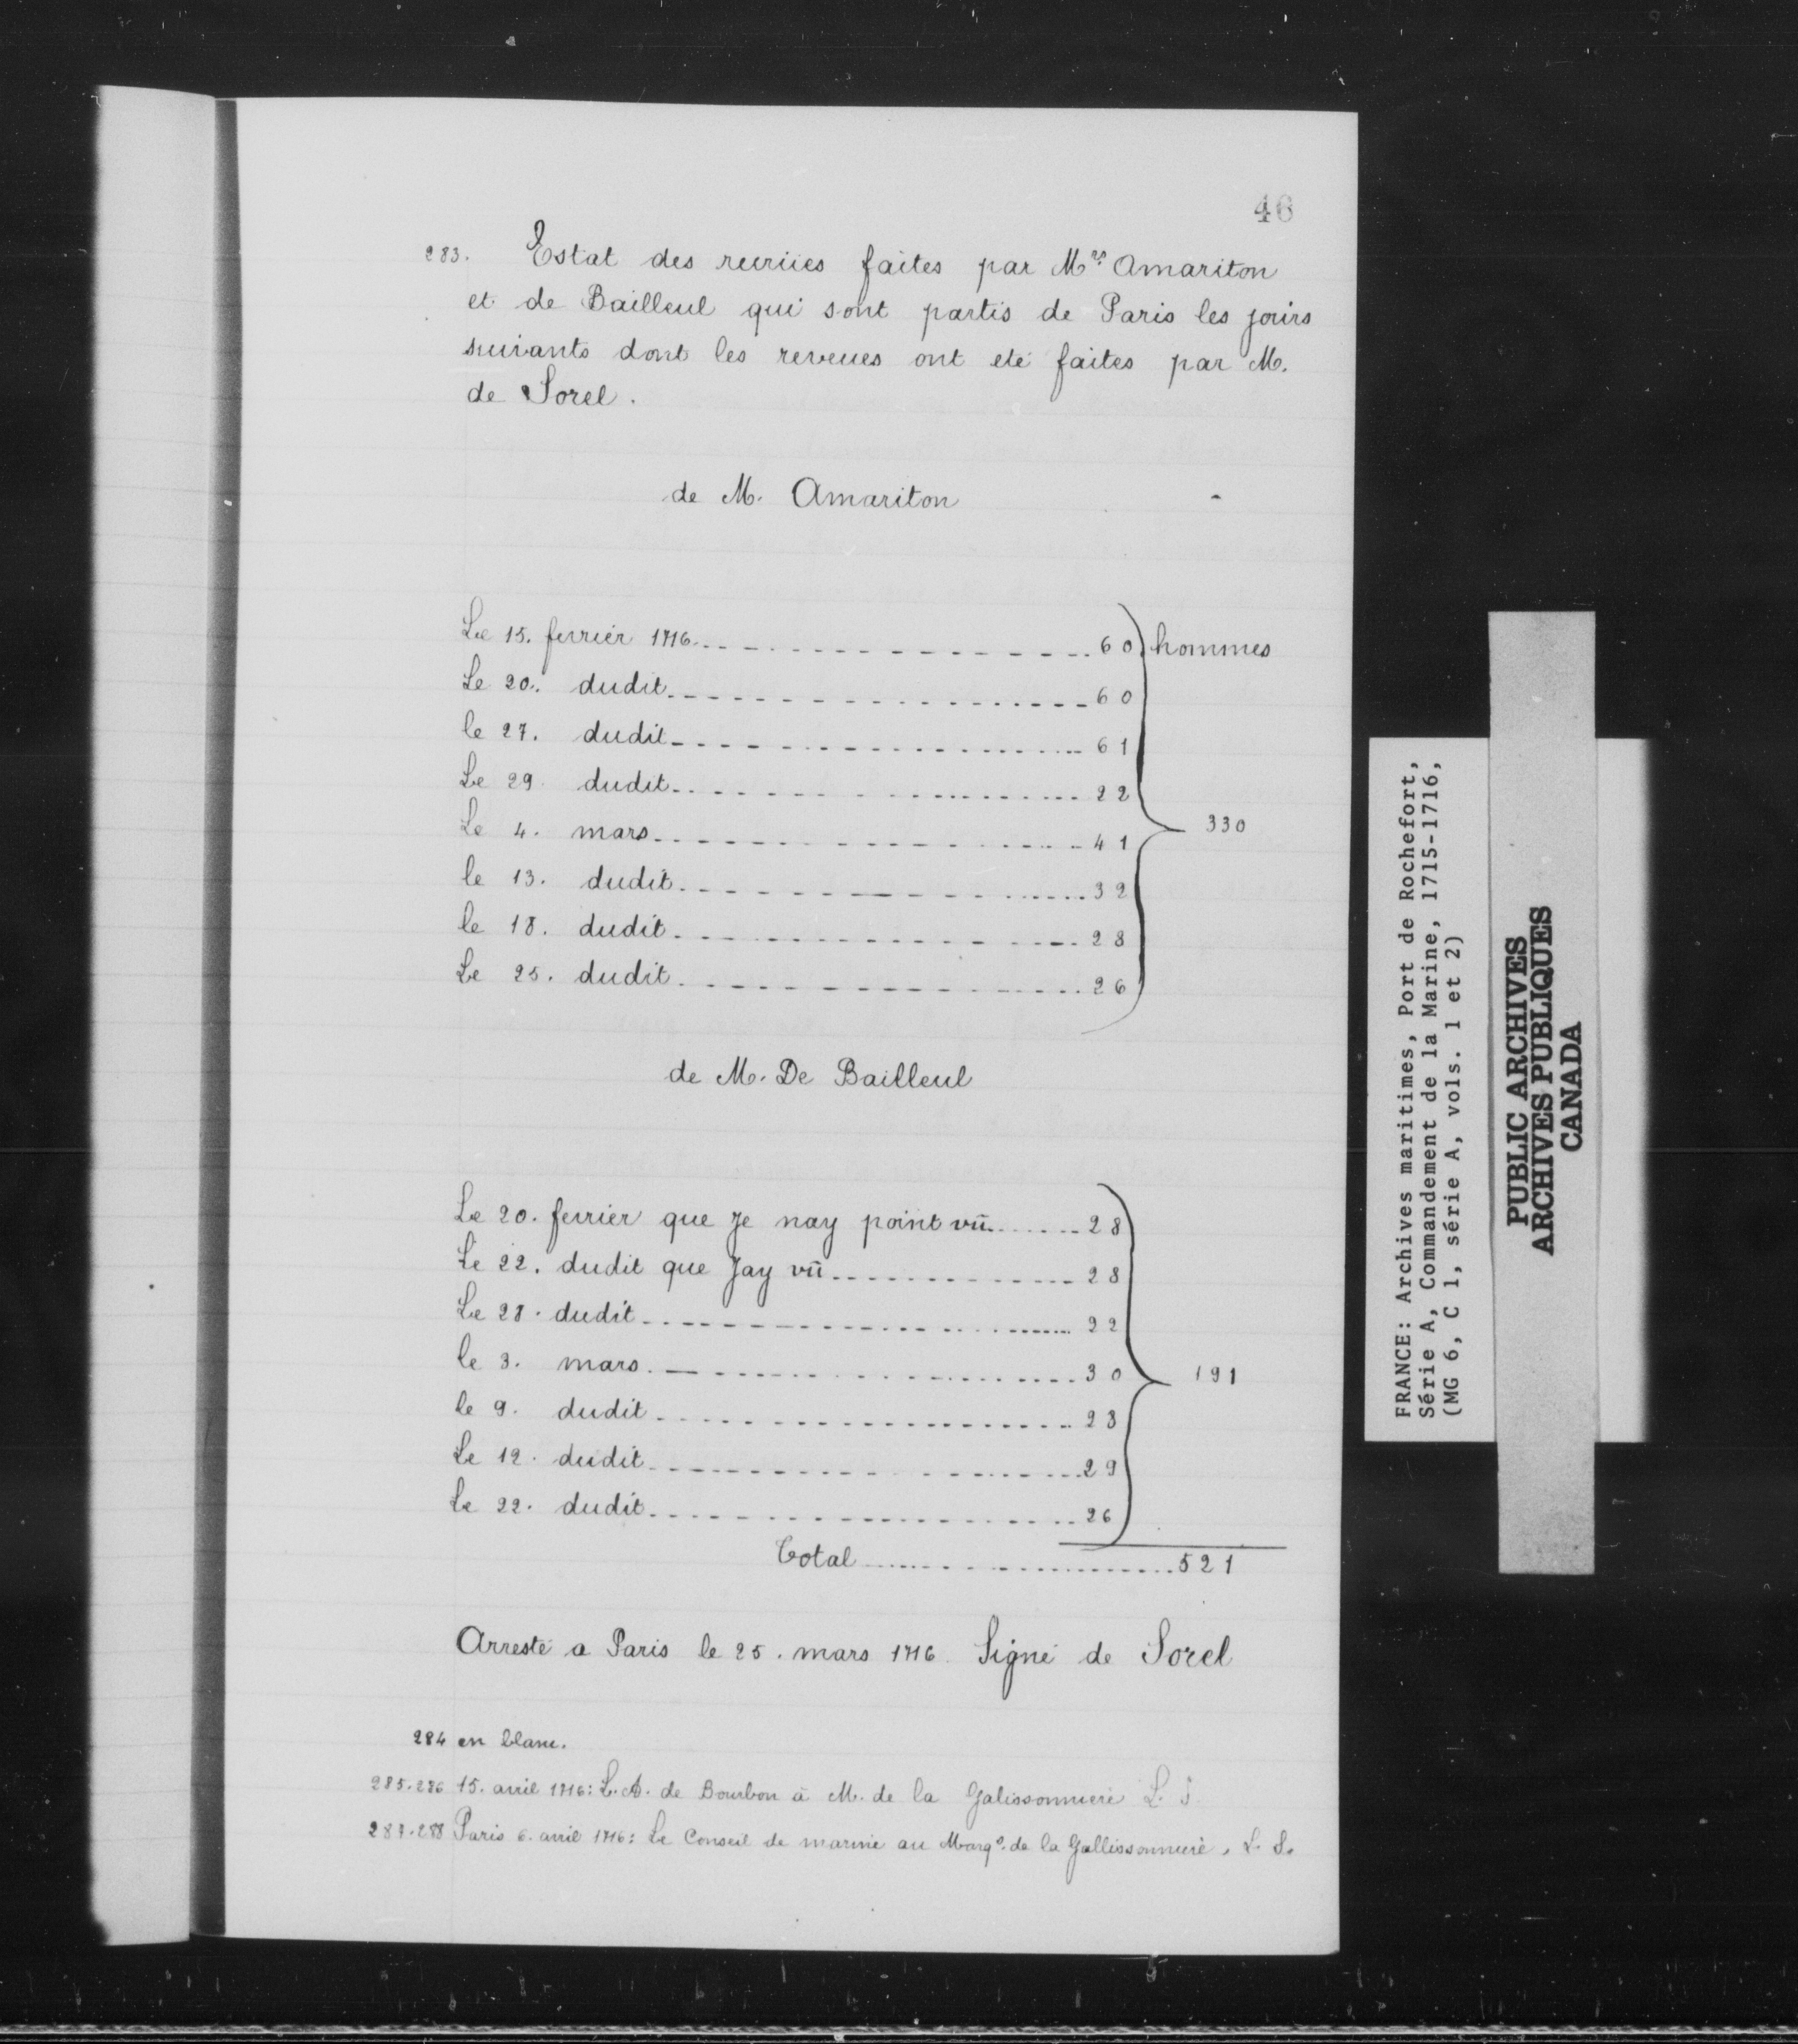 46
283. Estat des recriies faites par Mrs Amariton
et de Bailleul qui sont partis de Paris les jours
suivants dont les reveues ont eté faites par M.
de Sorel.
de M. Amariton
Le 15. fevrier 1716 60 hommes
Le 20. dudit 60
le 27. dudit 61
Le 29 dudit 22
Le 4. mars 41
330
le 13. dudit 32
le 18. dudit 28
Le 25. dudit 26
de M. De Bailleul
Le 20. fevrier que je nay point vû 28
Le 22. dudit que Jay vû 28
Le 28. dudit 22
le 3. mars 30
191
le 9. dudit 28
Le 12. dudit 29
Le 22. dudit 26
Total 521
Arresté a Paris le 25. mars 1716 Signé de Sorel
284 en blanc.
285.286 15. avril 1716: L. A. de Bourbon à M. de la Galissonniere L. S.
287.288 Paris 6. avril 1716: Le Conseil de marine au Marqs. de la Gallissonniere, L. S.
FRANCE: Archives maritimes, Port de Rochefort,
Série A, Commandement de la Marine, 1715-1716,
(MG 6, C 1, série A, vols. 1 et 2)
PUBLIC ARCHIVES
ARCHIVES PUBLIQUES
CANADA